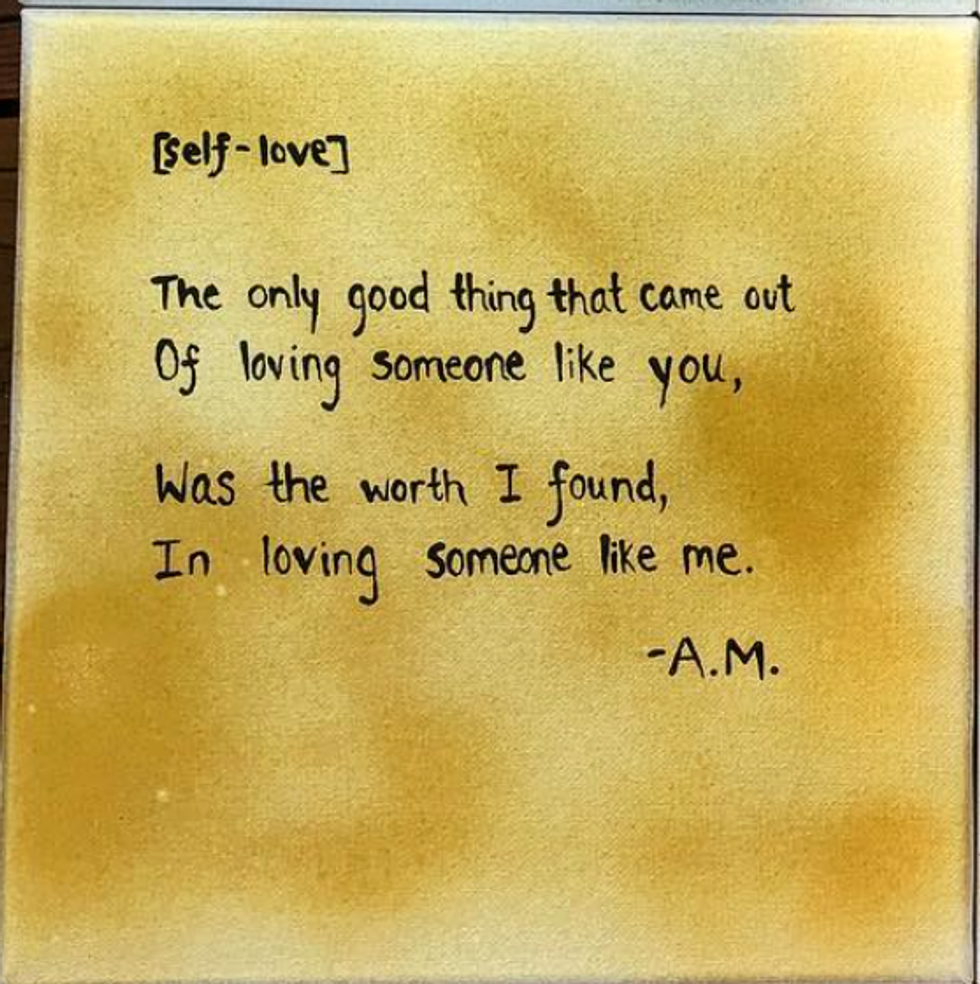 [self-love]
The only good thing that came out
Of loving someone like you,
Was the worth I found,
In loving someone like me.
-A.M.